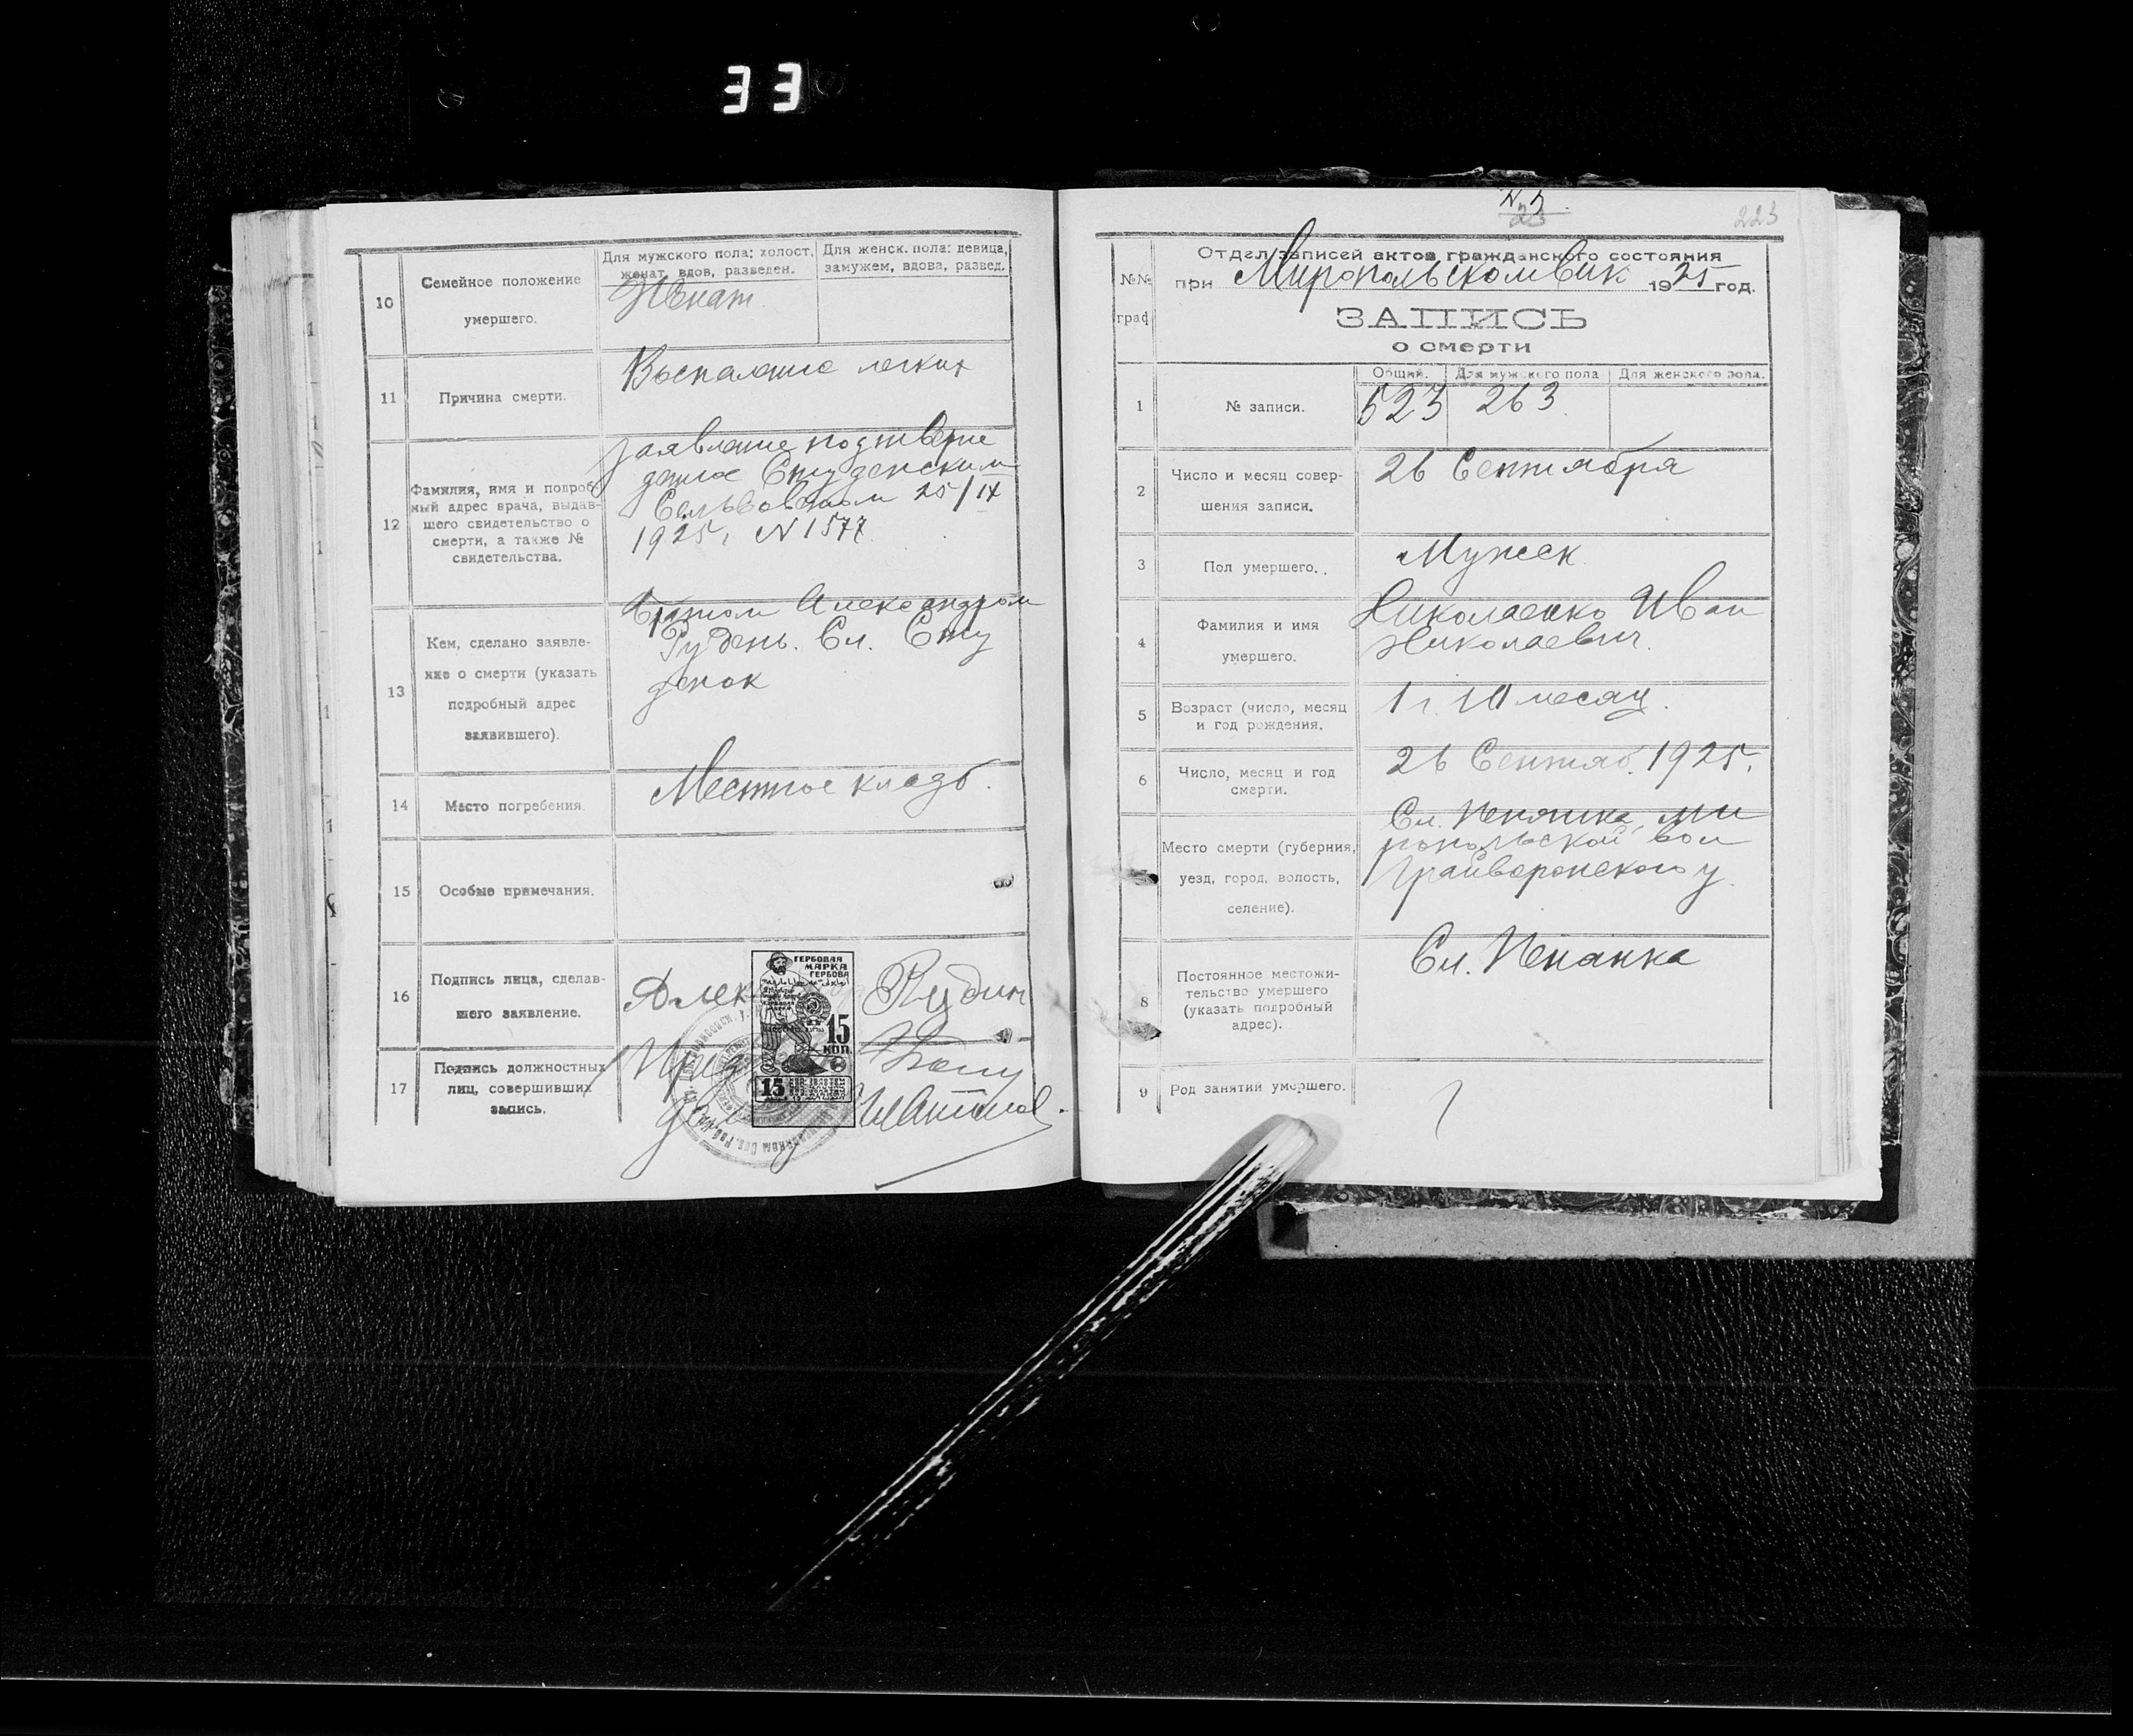 33
10
Семейное положение
умершего.
Для мужского пола: холост,
женат, вдов, разведен.
Для женск. пола: девица,
замужем, вдова, развед.
Женат.
11
Причина смерти.
Воспаление легких
12
Фамилия, имя и подроб-
ный адрес врача, выдав-
шего свидетельство о
смерти, а также №
свидетельства.
Заявление подтверж
дение Студенским
Сельсоветом 25/IX
1925, N 1577.
13
Кем, сделано заявле-
ние о смерти (указать
подробный адрес
заявившего).
Братом Александром
Рудень. Сл. Сту
денок
14
Место погребения.
Местное кладб.
15
Особые примечания.
16
Подпись лица, сделав-
шего заявление.
17
Подпись должностных
лиц, совершивших
запись.
ГЕРБОВАЯ
МАРКА
ГЕРБОВА
15
КОП.
15
223
Отдел записей актов гражданского состояния
№№
граф
при Миропольском Вик 1925 год.
ЗАПИСЬ
о смерти
Общий. Для мужского пола Для женского пола.
1
№ записи.
523 263
2
Число и месяц совер-
шения записи.
26 Сентября
3
Пол умершего.
Мужск
4
Фамилия и имя
умершего.
Николаенко Иван
Николаевич.
5
Возраст (число, месяц
и год рождения.
1 г. 10 месяц.
6
Число, месяц и год
смерти.
26 Сентяб. 1925,
Место смерти (губерния,
уезд, город, волость,
селение).
Сл. Пенянка, Ми
ропольской вол
Грайворонского у.
8
Постоянное местожи-
тельство умершего
(указать подробный
адрес).
Сл. Пенянка
9
Род занятий умершего.